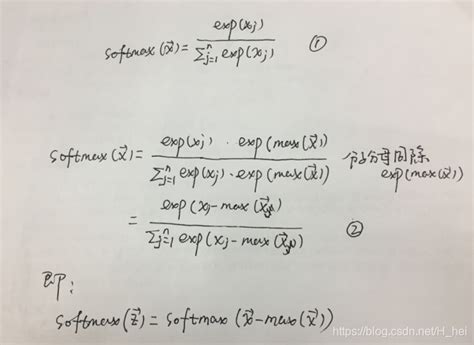 softmax(x⃗) = exp(xj) / ∑ⁿj=1 exp(xj) ①
softmax(x⃗) = exp(xj) · exp(max(x⃗)) / ∑ⁿj=1 exp(xj) · exp(max(x⃗)) 分子分母同除 exp(max(x⃗))
= exp(xj - max(x⃗)) / ∑ⁿj=1 exp(xj - max(x⃗)) ②
即:
softmax(z⃗) = softmax(x⃗ - max(x⃗))
https://blog.csdn.net/H_hei